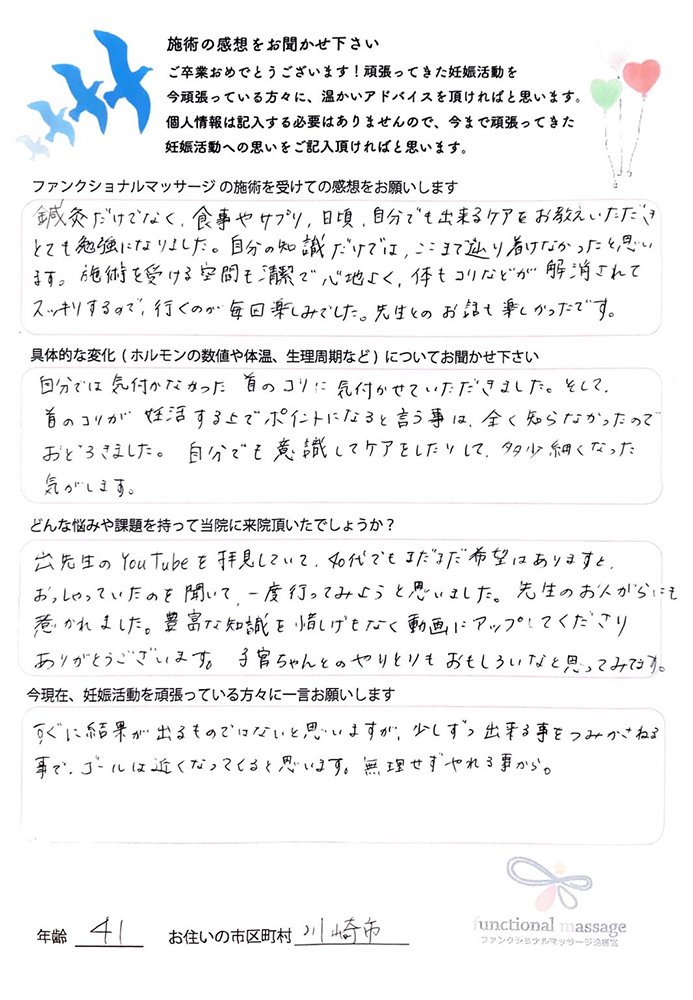 施術の感想をお聞かせ下さい
ご卒業おめでとうございます！頑張ってきた妊娠活動を
今頑張っている方々に、温かいアドバイスを頂ければと思います。
個人情報は記入する必要はありませんので、今まで頑張ってきた
妊娠活動への思いをご記入頂ければと思います。
ファンクショナルマッサージ の施術を受けての感想をお願いします
鍼灸だけでなく、食事やサプリ、日頃、自分でも出来るケアをお教えいただき
とても勉強になりました。自分の知識だけでは、ここまで辿り着けなかったと思い
ます。施術を受ける空間も清潔で心地よく、体もコリなどが解消されて
スッキリするので、行くのが毎回楽しみでした。先生とのお話も楽しかったです。
具体的な変化（ホルモンの数値や体温、生理周期など）についてお聞かせ下さい
自分では気付かなかった首のコリに気付かせていただきました。そして、
首のコリが妊活する上でポイントになると言う事は、全く知らなかったので
おどろきました。自分でも意識してケアをしたりして、多少細くなった
気がします。
どんな悩みや課題を持って当院に来院頂いたでしょうか？
先生のYouTubeを拝見していて、40代でもまだまだ希望はありますと、
おっしゃっていたのを聞いて、一度行ってみようと思いました。先生のお人がらにも
惹かれました。豊富な知識を惜しげもなく動画にアップしてくださり
ありがとうございます。子宮ちゃんとのやりとりもおもしろいなと思ってみてます。
今現在、妊娠活動を頑張っている方々に一言お願いします
すぐに結果が出るものではないと思いますが、少しずつ出来る事をつみかさねる
事で、ゴールは近くなってくると思います。無理せずやれる事から。
functional massage
ファンクショナルマッサージ治療室
年齢 41 お住いの市区町村 川崎市